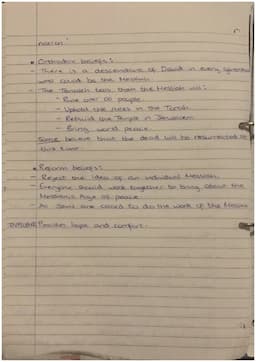 • Orthodox beliefs:
- There is a descendant of David in every generation
who could be the Messiah
- The Tanakh tells them the Messiah will:
- Rule over all people
- Uphold the rules in the Torah
- Rebuild the Temple in Jerusalem
- Bring world peace
Some believe that the dead will be resurrected at
this time
• Reform beliefs:
- Reject the idea of an individual Messiah
- Everyone should work together to bring about the
Messianic Age of peace
- All Jews are called to do the work of the Messiah
Provides hope and comfort.